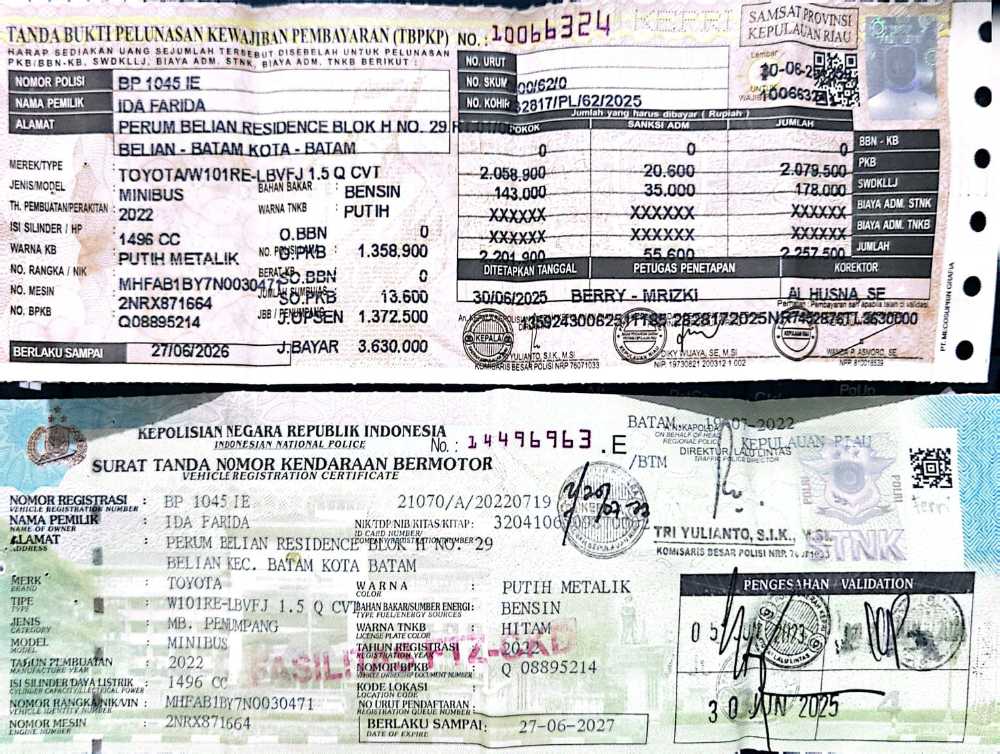 TANDA BUKTI PELUNASAN KEWAJIBAN PEMBAYARAN (TBPKP) NO.: 10066324
HARAP SEDIAKAN UANG SEJUMLAH TERSEBUT DISEBELAH UNTUK PELUNASAN
PKB/BBN-KB, SWDKLLJ, BIAYA ADM. STNK, BIAYA ADM. TNKB BERIKUT :
SAMSAT PROVINSI
KEPULAUAN RIAU
Lembar
UNTUK
NOMOR POLISI BP 1045 IE
NAMA PEMILIK IDA FARIDA
ALAMAT PERUM BELIAN RESIDENCE BLOK H NO. 29
BELIAN - BATAM KOTA - BATAM
MEREK/TYPE : TOYOTA/W101RE-LBVFJ 1.5 Q CVT
JENIS/MODEL : MINIBUS BAHAN BAKAR : BENSIN
TH. PEMBUATAN/PERAKITAN : 2022 WARNA TNKB : PUTIH
ISI SILINDER / HP : 1496 CC
WARNA KB : PUTIH METALIK
NO. RANGKA / NIK : MHFAB1BY7N0030471
NO. MESIN : 2NRX871664
NO. BPKB : Q08895214
BERLAKU SAMPAI 27/06/2026
O.BBN 0
O.PKB 1.358.900
SO.BBN 0
SO.PKB 13.600
J.OPSEN 1.372.500
J.BAYAR 3.630.000
NO. URUT
NO. SKUM 00/62/0
NO. KOHIR 32817/PL/62/2025
Jumlah yang harus dibayar ( Rupiah )
POKOK SANKSI ADM JUMLAH
0 0 0 BBN - KB
2.058.900 20.600 2.079.500 PKB
143.000 35.000 178.000 SWDKLLJ
XXXXXX XXXXXX XXXXXX BIAYA ADM. STNK
XXXXXX XXXXXX XXXXXX BIAYA ADM. TNKB
2.201.900 55.600 2.257.500 JUMLAH
DITETAPKAN TANGGAL PETUGAS PENETAPAN KOREKTOR
30/06/2025 BERRY - MRIZKI AL HUSNA, SE
YULIANTO, S.I.K, M.SI
KOMISARIS BESAR POLISI NRP 76071033
NIP. 19730821 200312 1 002
KEPOLISIAN NEGARA REPUBLIK INDONESIA
INDONESIAN NATIONAL POLICE
No. : 14496963 .E
SURAT TANDA NOMOR KENDARAAN BERMOTOR
VEHICLE REGISTRATION CERTIFICATE
/BTM
KEPULAUAN RIAU
DIREKTUR LALU LINTAS
TRAFFIC POLICE DIRECTOR
TRI YULIANTO, S.I.K., M.SI.
STNK
POLRI
NOMOR REGISTRASI : BP 1045 IE 21070/A/20220719
VEHICLE REGISTRATION NUMBER
NAMA PEMILIK : IDA FARIDA NIK/TDP/NIB/KITAS/KITAP :
NAME OF OWNER
ALAMAT : PERUM BELIAN RESIDENCE BLOK H NO. 29
ADDRESS
BELIAN KEC. BATAM KOTA BATAM
MERK : TOYOTA WARNA : PUTIH METALIK
BRAND COLOR
TIPE : W101RE-LBVFJ 1.5 Q CVT BAHAN BAKAR/SUMBER ENERGI : BENSIN
TYPE TYPE FUEL/ENERGY SOURCES
JENIS : MB. PENUMPANG WARNA TNKB : HITAM
CATEGORY LICENSE PLATE COLOR
MODEL : MINIBUS TAHUN REGISTRASI : 2022
MODEL REGISTRATION YEAR
TAHUN PEMBUATAN : 2022 NOMOR BPKB : Q 08895214
MANUFACTURE YEAR
ISI SILINDER/DAYA LISTRIK : 1496 CC KODE LOKASI :
CYLINDER CAPACITY/ELECTRICAL POWER LOCATION CODE
NOMOR RANGKA/NIK/VIN : MHFAB1BY7N0030471 NO URUT PENDAFTARAN :
VEHICLE IDENTITY NUMBER REGISTRATION QUEUE NUMBER
NOMOR MESIN : 2NRX871664 BERLAKU SAMPAI : 27-06-2027
ENGINE NUMBER DATE OF EXPIRE
PENGESAHAN - VALIDATION
30 JUN 2025